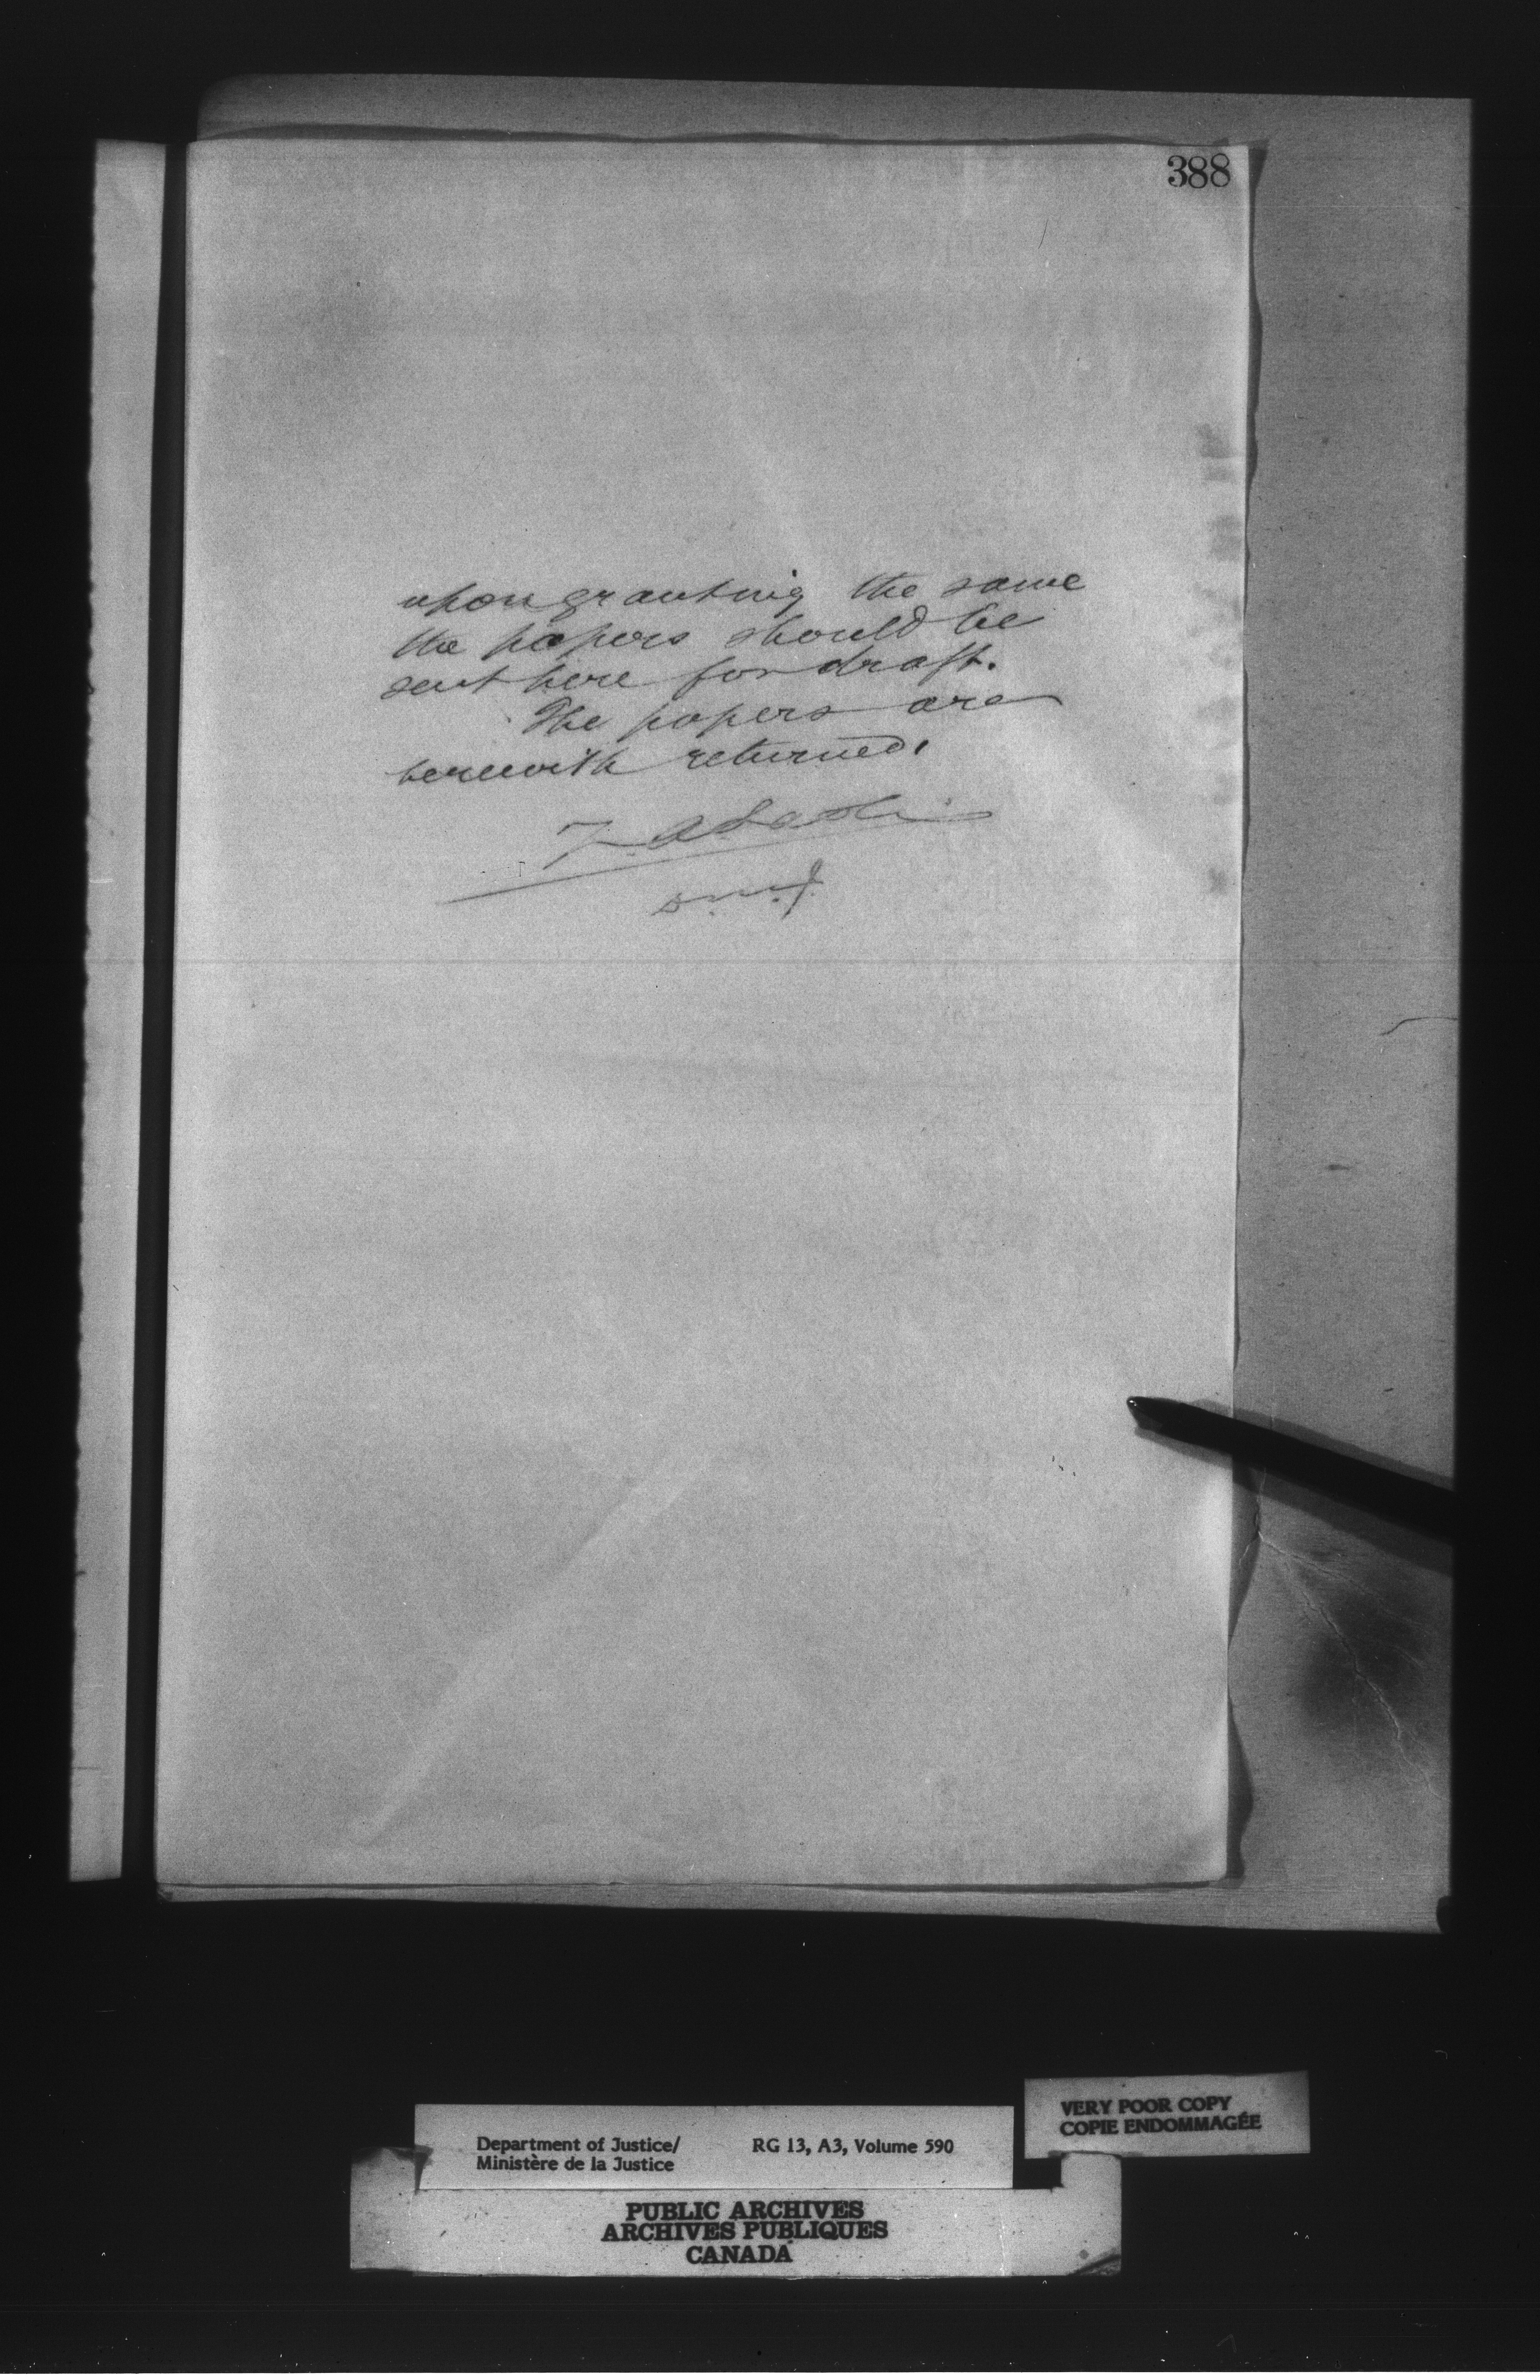 388
upon granting the same
the papers should be
sent here for draft.
The papers are
herewith returned.
D.M.J.
VERY POOR COPY
COPIE ENDOMMAGÉE
Department of Justice/ RG 13, A3, Volume 590
Ministère de la Justice
PUBLIC ARCHIVES
ARCHIVES PUBLIQUES
CANADA